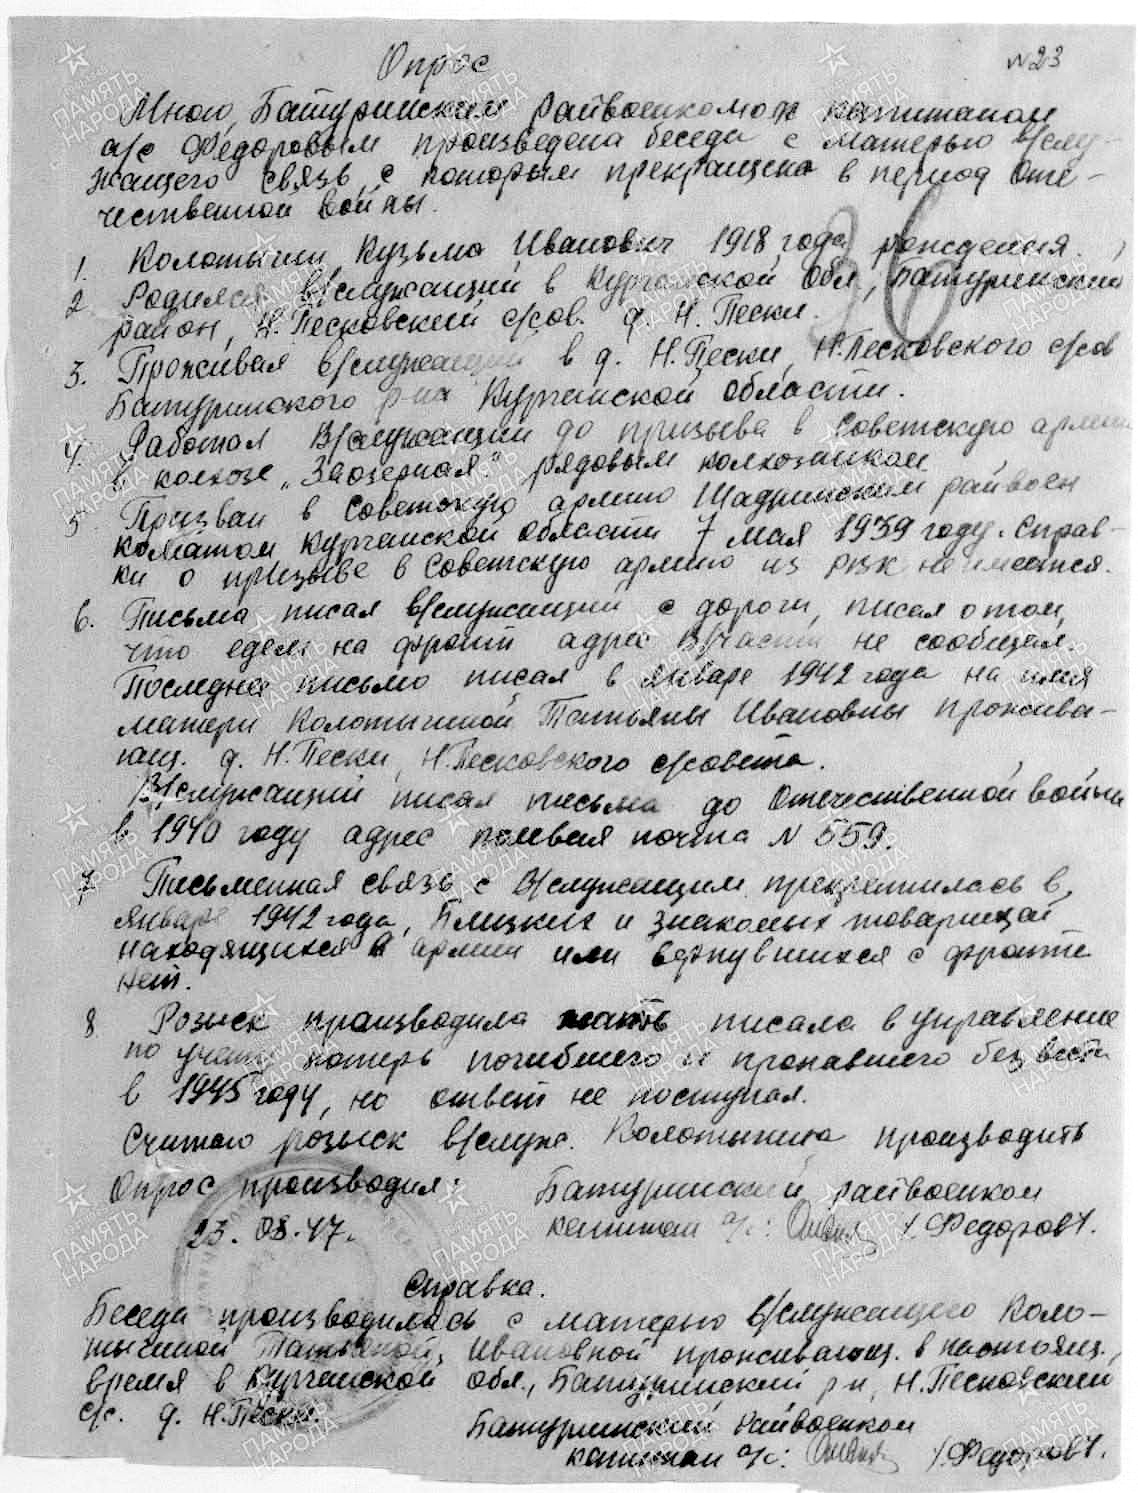 Опрос
№23
Мною, Батуринским райвоенкомом капитаном
а/с Федоровым произведена беседа с матерью в/слу-
жащего связь с которым прекращена в период Оте-
чественной войны.
1. Колотыгин Кузьма Иванович 1918 года рождения.
2 Родился в/служащий в Курганской Обл, Батуринский
район, Н.Песковский с/сов. д. Н. Пески.
3. Проживал в/служащий в д. Н.Пески, Н.Песковского с/сов
Батуринского р-на Курганской области.
4. Работал в/служащий до призыва в Советскую армию
в колхозе „Заозерная" рядовым колхозником
5 Призван в Советскую армию Шадринским райвоен
коматом Курганской области 7 мая 1939 году. Справ-
ки о призыве в Советскую армию из РВК не имеется.
6. Письма писал в/служащий с дороги, писал о том,
что едем на фронт адрес в/части не сообщал.
Последнее письмо писал в январе 1942 года на имя
матери Колотыгиной Татьяны Ивановны прожива-
ющ. д. Н.Пески, Н.Песковского с/совета.
В/служащий писал письма до Отечественной войны
в 1940 году адрес полевая почта N 559.
7 Письменная связь с в/служащим прекратилась в
январе 1942 года, Близких и знакомых товарищей
находящихся в армии или вернувшихся с фронта
нет.
8 Розыск производила мать писала в управление
по учету потерь погибшего и пропавшего без вести
в 1945 году, но ответ не поступал.
Считаю розыск в/служ. Колотыгина производить
Опрос производил: Батуринский райвоенком
23. 08. 47. капитан а/с: /Федоров/.
Справка.
Беседа производилась с матерью в/служащего Коло-
тыгиной Татьяной Ивановной проживающ. в настоящ.
время в Курганской обл., Батуринский р-н, Н.Песковский
с/с. д. Н.Пески.
Батуринский Райвоенком
капитан а/с: /Федоров/.
ПАМЯТЬ НАРОДА